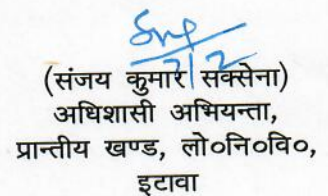 (संजय कुमार सक्सेना)
अधिशासी अभियन्ता,
प्रान्तीय खण्ड, लो०नि०वि०,
इटावा